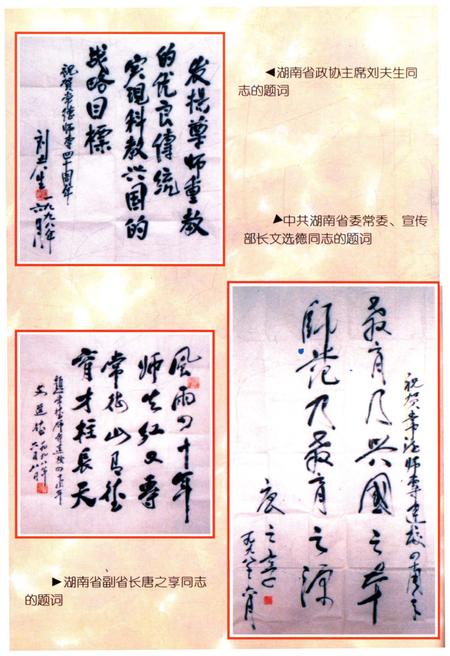 发扬尊师重教
的优良传统
实现科教兴国的
战略目标
祝贺常德师专四十周年
刘夫生
一九九八年
六月
◀湖南省政协主席刘夫生同
志的题词
◣中共湖南省委常委、宣传
部长文选德同志的题词
風雨四十年
师生红又專
常德山有德
育才柱長天
文选德
一九九八年
六月八日
祝贺常德师专建校四十周年
教育乃兴國之本
師范乃教育之源
唐之享
▶湖南省副省长唐之享同志
的题词